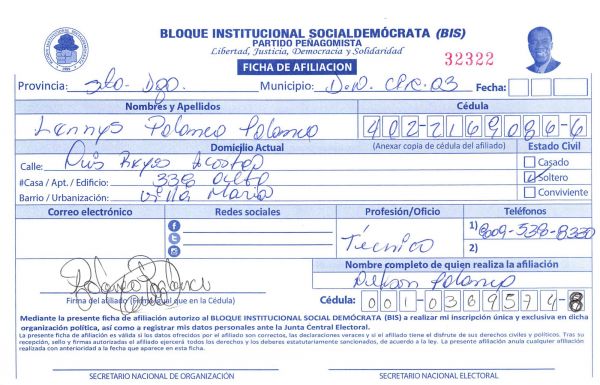 BLOQUE INSTITUCIONAL SOCIALDEMÓCRATA (BIS)
PARTIDO PEÑAGOMISTA
Libertad, Justicia, Democracia y Solidaridad
FICHA DE AFILIACION
32322
Provincia: Sto. Dgo. Municipio: D.N. Circ. 03 Fecha:
Nombres y Apellidos Cédula
Lannys Polanco Polanco 402-2169086-6
Domicilio Actual (Anexar copia de cédula del afiliado) Estado Civil
Calle: Luis Reyes Acosta Casado
#Casa / Apt. / Edificio: 338 Alto Soltero
Barrio / Urbanización: Villa Maria Conviviente
Correo electrónico Redes sociales Profesión/Oficio Teléfonos
1) 809-538-8330
Técnico 2)
Nombre completo de quien realiza la afiliación
Polanco
Firma del afiliado (Firme igual que en la Cédula) Cédula: 001-0369574-8
Mediante la presente ficha de afiliación autorizo al BLOQUE INSTITUCIONAL SOCIAL DEMÓCRATA (BIS) a realizar mi inscripción única y exclusiva en dicha
organización política, así como a registrar mis datos personales ante la Junta Central Electoral.
La presente ficha de afiliación es válida si los datos ofrecidos por el afiliado son correctos, las declaraciones veraces y si el afiliado tiene el disfrute de sus derechos civiles y políticos. Tras su
recepción, sello y firmas autorizadas el afiliado ejercerá todos los derechos y los deberes estatutariamente sancionados, de acuerdo a la ley. La presente afiliación anula cualquier afiliación
realizada con anterioridad a la fecha que aparece en esta ficha.
SECRETARIO NACIONAL DE ORGANIZACIÓN SECRETARIO NACIONAL ELECTORAL